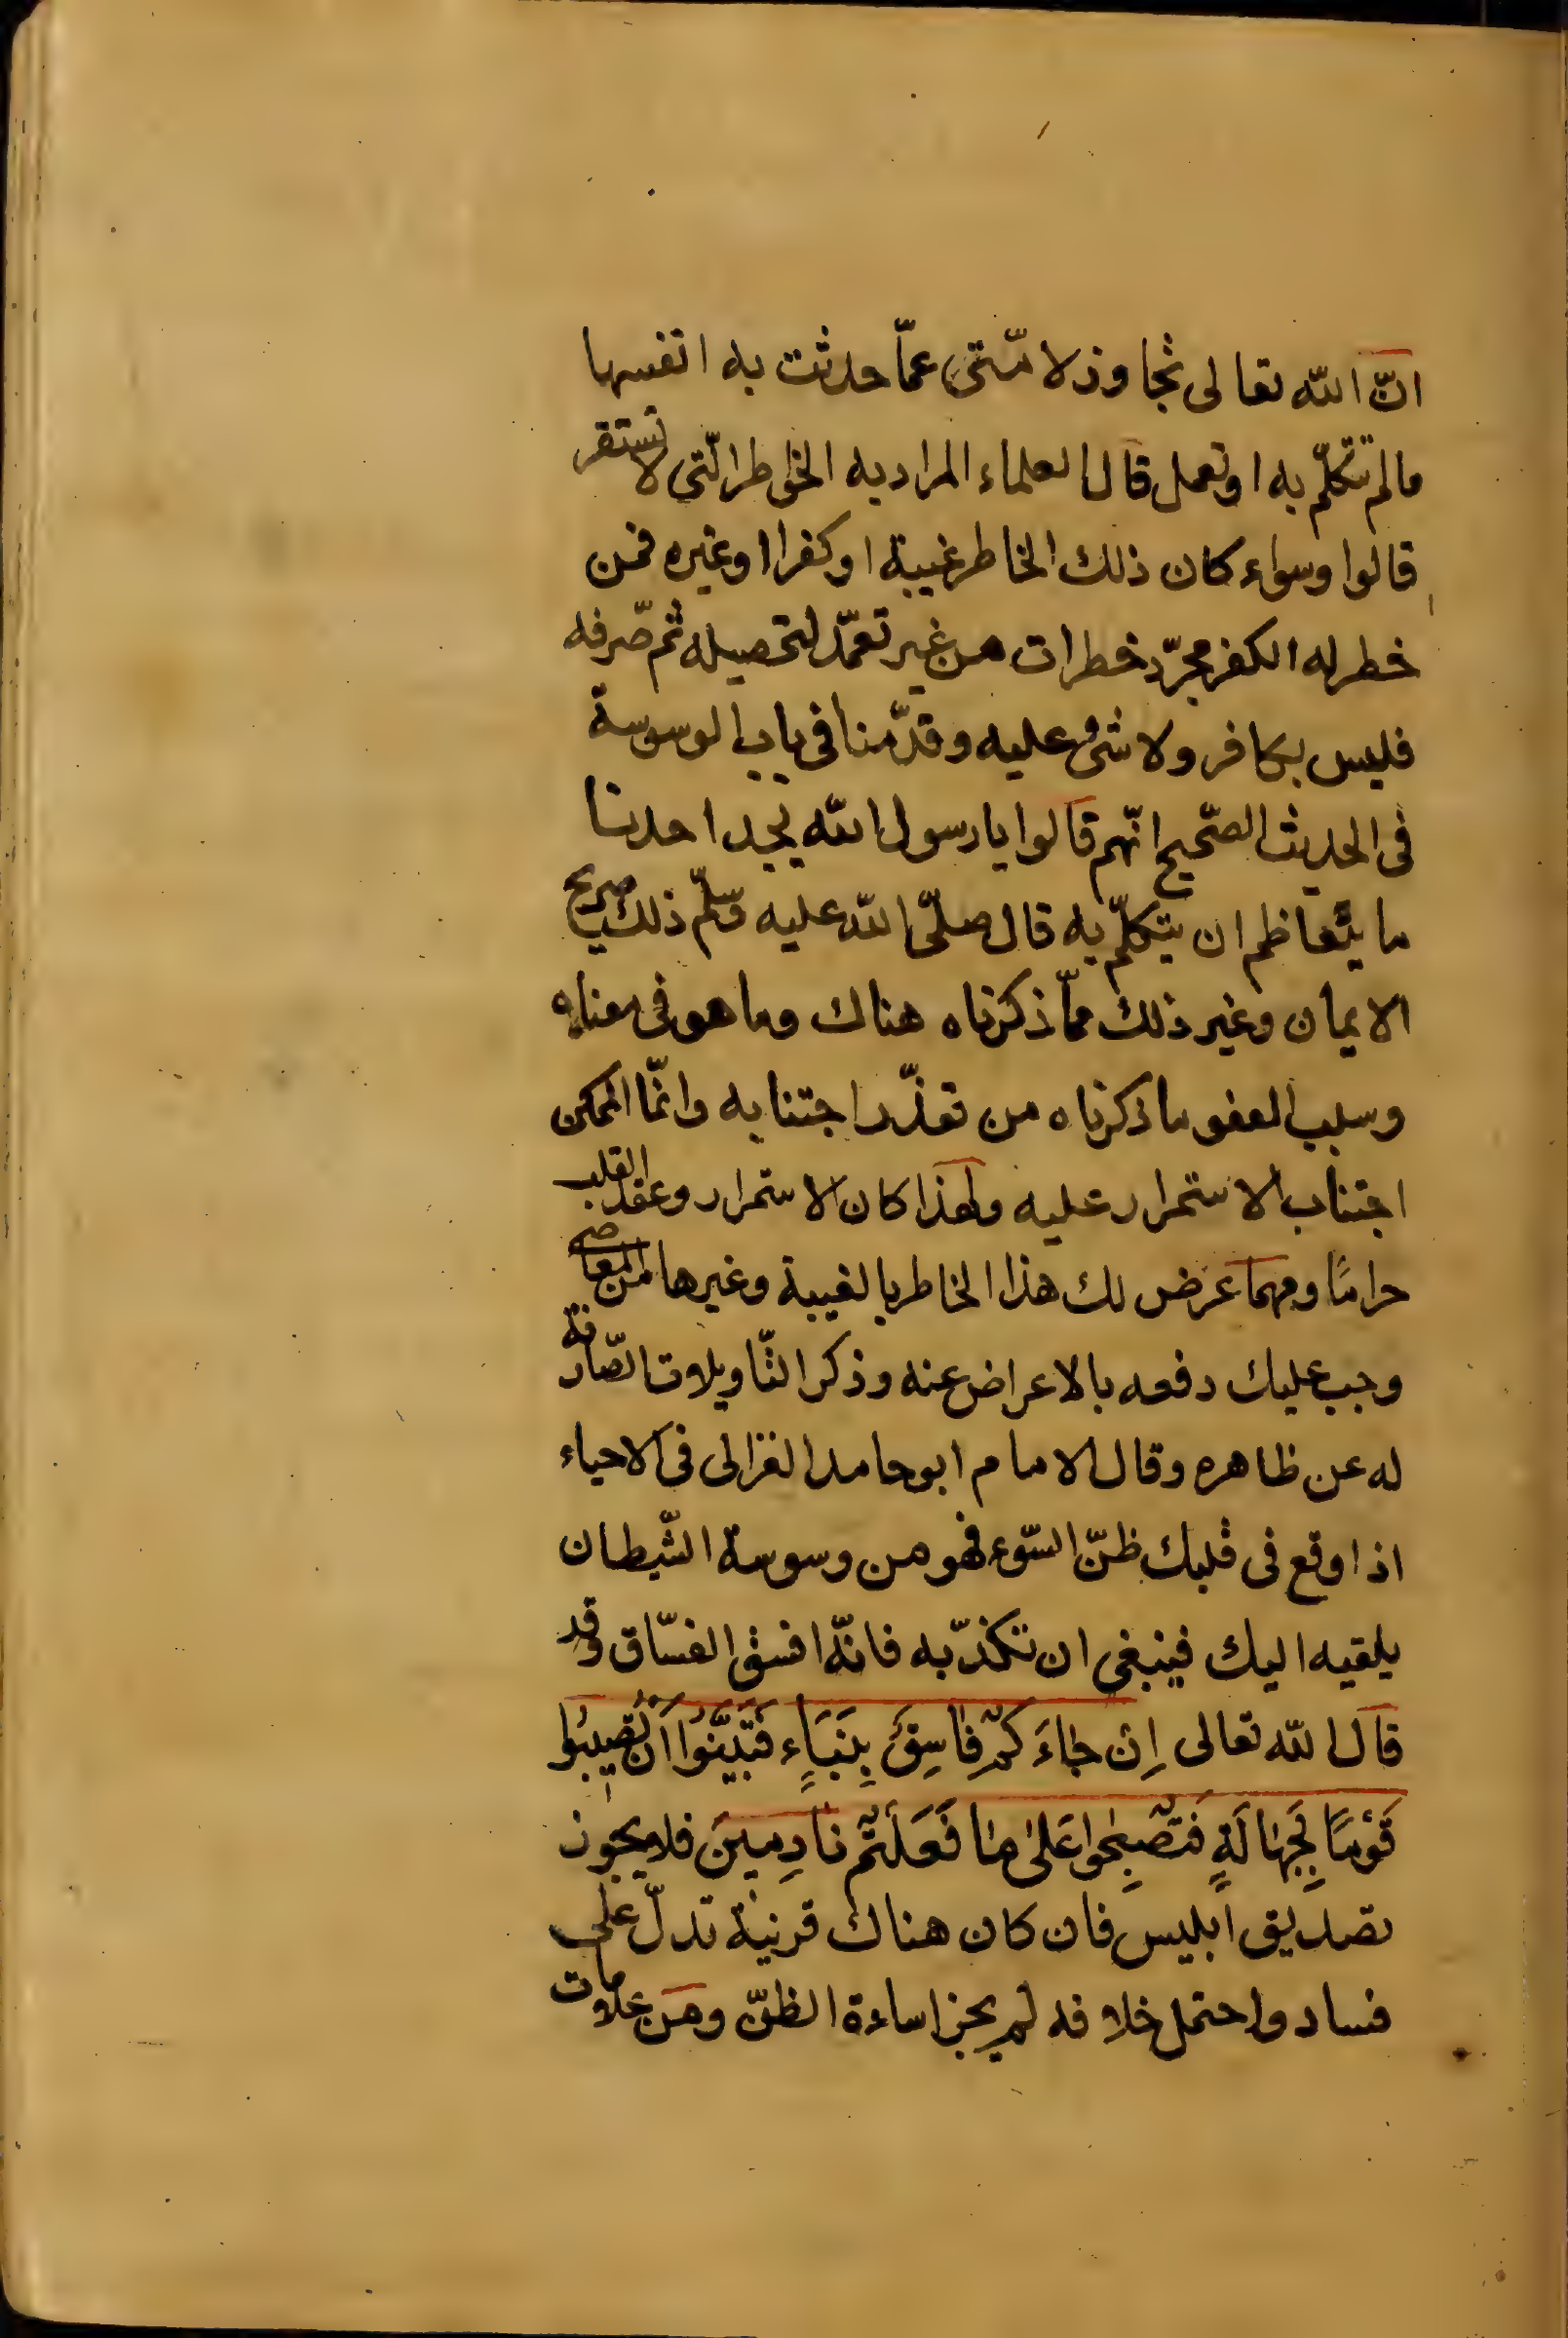 انّ اللّه تعالى تجاوز لامّتى عمّا حدثت به انفسها
مالم تتكلّم به او تعمل قال العلماء المراد به الخواطر الّتى لا تستقر
قالوا وسواء كان ذلك الخاطر غيبة او كفرا او غيره فمن
خطر له الكفر مجرّد خطرات من غير تعمّد لتحصيله ثم صّرفه
فليس بكافر ولا شئ عليه وقدّمنا فى باب الوسوسة
فى الحديث الصّحيح انّهم قالوا يا رسول اللّه يجد احدنا
ما يتعاظم ان يتكلّم به قال صلّى اللّه عليه وسلّم ذلك صريح
الايمان وغير ذلك ممّا ذكرناه هناك وما هو فى معناه
وسبب العفو ما ذكرناه من تعذّر اجتنابه وانّما الممكن
اجتناب الاستمرار عليه ولهذا كان الاستمرار وعقد القلب
حرامًا ومهما عرض لك هذا الخاطر بالغيبة وغيرها من المعاصى
وجب عليك دفعه بالاعراض عنه وذكر التّاويلات الصّارفة
له عن ظاهره وقال الامام ابو حامد الغزالى فى الاحياء
اذا وقع فى قلبك ظنّ السّوء فهو من وسوسة الشّيطان
يلقيه اليك فينبغى ان تكذّبه فانّه افسق الفسّاق وقد
قال اللّه تعالى اِنْ جاءَ كُمْ فاسِقٌ بِنَبَاءٍ فَتَبَيَّنُوا اَنْ تُصِيبُوا
قَوْمًا بِجَهالَةٍ فَتُصْبِحُوا عَلى ما فَعَلْتُمْ نادِمِينَ فلا يجوز
تصديق ابليس فان كان هناك قرنية تدلّ على
فساد واحتمل خلافه لم يجز اساءة الظنّ ومن علامات